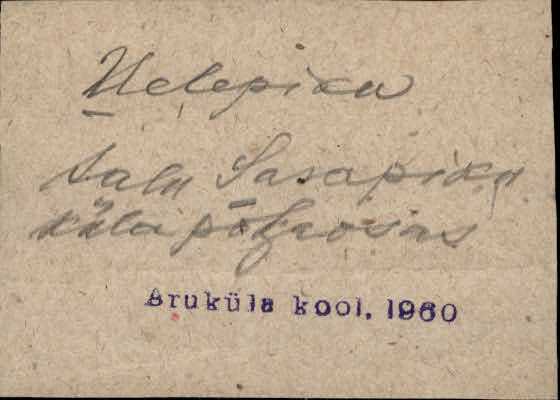 Uelepiku
talu Sasapiku
küla põhjaosas
Aruküla kool. 1960